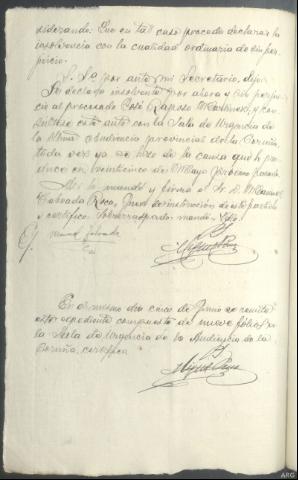 siderando: Que en tal caso procede declarar la
insolvencia con la cualidad ordinaria de sin per-
juicio.
S. Sª por ante mi Secretario, dijo:
Se declara insolvente por ahora y sin perjui-
cio al procesado José Raposo Martinez, y con-
súltese este auto con la Sala de Urgencia de
la Iltma Audiencia provincial de la Coruña
toda vez ya se hizo de la causa que
en veinticinco de Mayo próximo pasado.
Así lo mandó y firma el Sr. D. Manuel
Taboada Roca, Juez de instrucción de este partido
y certifico. Sobrerraspado=mandó=Vale.
Manuel Taboada
Roca
En el mismo día cinco de Junio se remite
este expediente compuesto de nueve folios a
la Sala de Urgencia de la Audiencia de la
Coruña, certifico
ARG